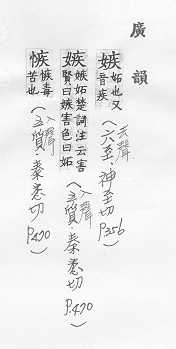 廣韻
嫉妬也又音疾（去聲 六至・神至切 P356）
嫉嫉妬楚詞注云害賢曰嫉害色曰妬（入聲 五質・秦悉切 P.470）
愱愱毒苦也（入聲 五質・秦悉切 P470）